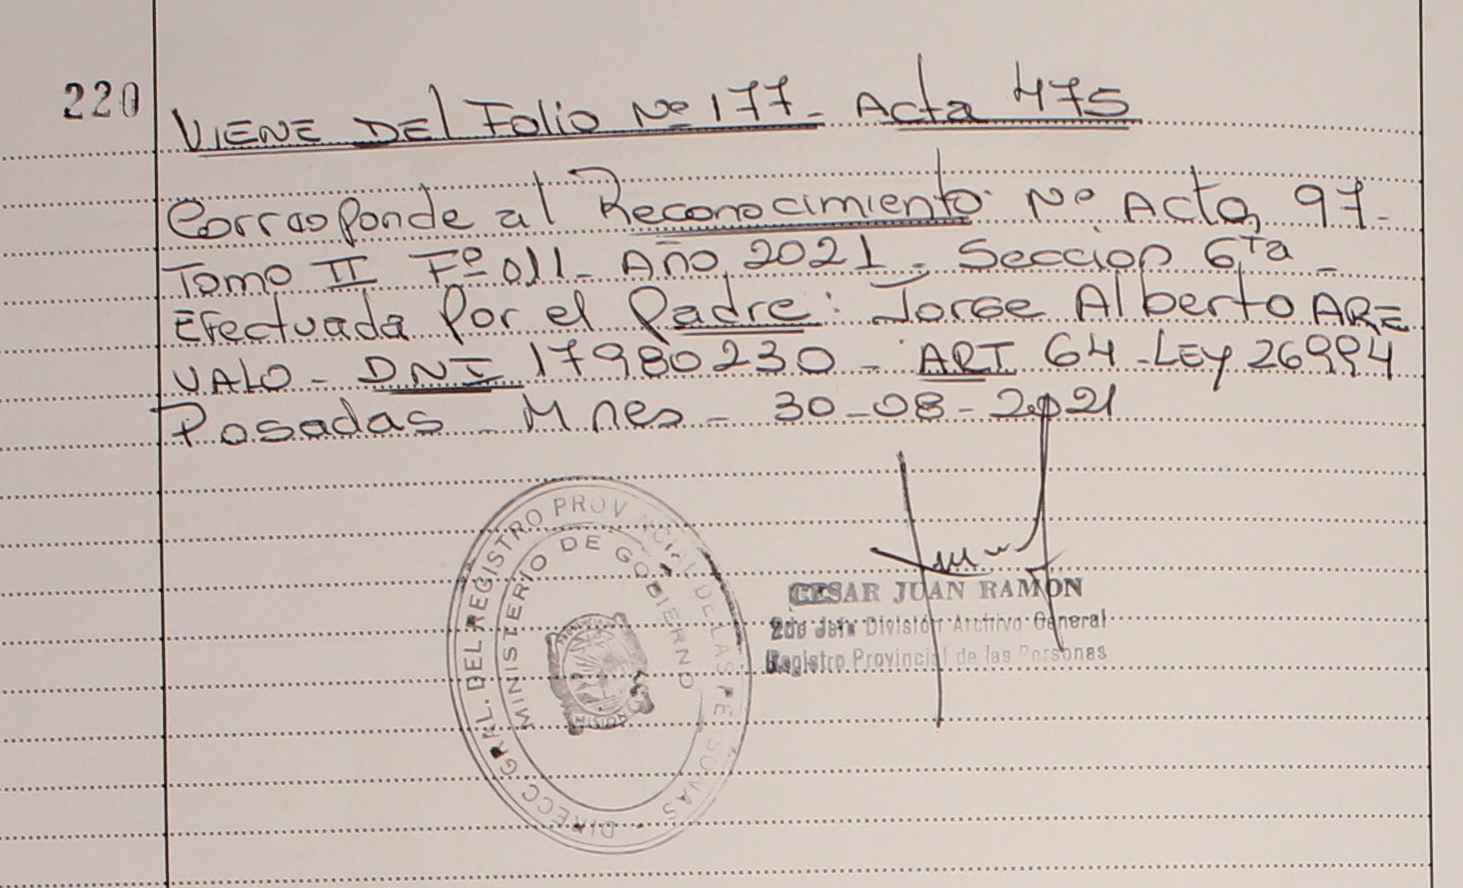 220
VIENE DEL Folio Nº 177- Acta 475
Corresponde al Reconocimiento Nº Acta, 97-
Tomo II Fº 011- Año 2021 - Seccion 6ta -
Efectuada Por el Padre: Jorge Alberto ARE
VALO - DNI 17980230 - ART 64 - LEY 26994
Posadas - Mnes - 30-08-2021
DIRECC. GRAL. DEL REGISTRO PROVINCIAL DE LAS PERSONAS
MINISTERIO DE GOBIERNO
CESAR JUAN RAMON
2do Jefe División Archivo General
Registro Provincial de las Personas